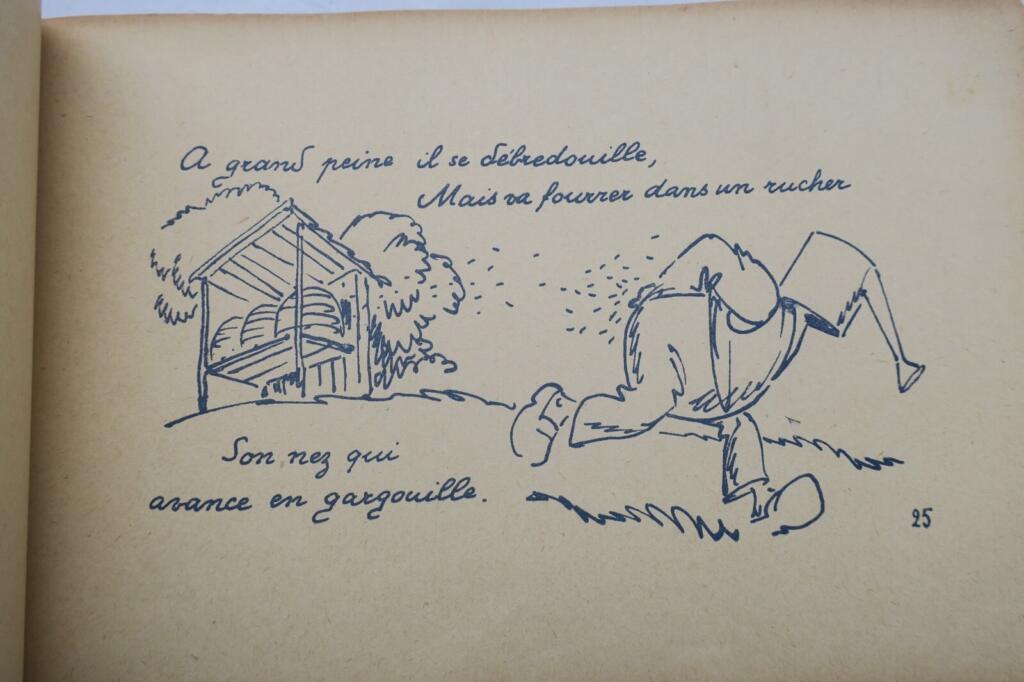 A grand peine il se débredouille,
Mais va fourrer dans un rucher
Son nez qui
avance en gargouille.
25